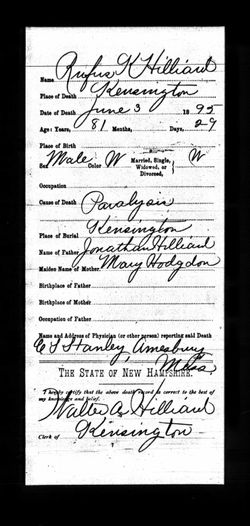 Name Rufus K Hilliard
Place of Death Kensington
Date of Death June 3 1895
Age: Years, 81 Months, Days, 29
Place of Birth
Sex Male Color W Married, Single, Widowed, or Divorced, W
Occupation
Cause of Death Paralysis
Place of Burial Kensington
Name of Father Jonathan Hilliard
Maiden Name of Mother Mary Hodgdon
Birthplace of Father
Birthplace of Mother
Occupation of Father
Name and Address of Physician (or other person) reporting said Death
Stanley, Amesbury
Mass
THE STATE OF NEW HAMPSHIRE.
I hereby certify that the above death record is correct to the best of
my knowledge and belief.
Walter A. Hilliard
Clerk of Kensington